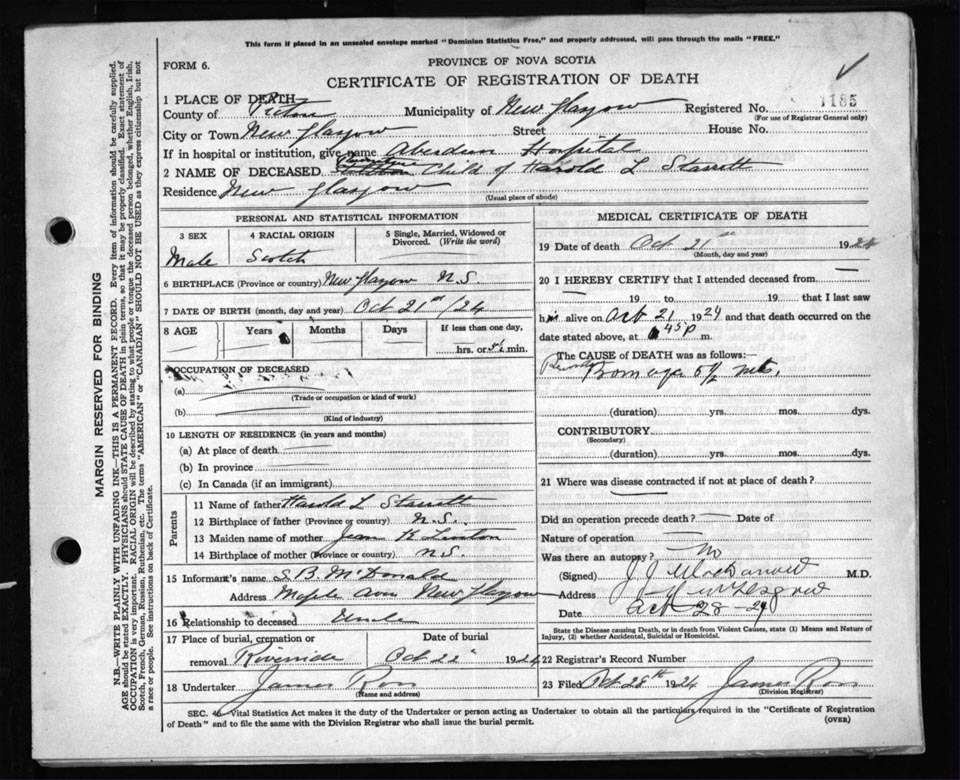 This form if placed in an unsealed envelope marked "Dominion Statistics Free," and properly addressed, will pass through the mails "FREE."
FORM 6.
PROVINCE OF NOVA SCOTIA
CERTIFICATE OF REGISTRATION OF DEATH
1 PLACE OF DEATH—
County of Pictou Municipality of New Glasgow Registered No. 1185
(For use of Registrar General only)
City or Town New Glasgow Street House No.
If in hospital or institution, give name Aberdeen Hospital
2 NAME OF DECEASED Child of Harold L Starritt
Residence New Glasgow
(Usual place of abode)
PERSONAL AND STATISTICAL INFORMATION
3 SEX 4 RACIAL ORIGIN 5 Single, Married, Widowed or Divorced. (Write the word)
Male Scotch
6 BIRTHPLACE (Province or country) New Glasgow N.S.
7 DATE OF BIRTH (month, day and year) Oct 21st /24
8 AGE Years Months Days If less than one day,
hrs. or min.
OCCUPATION OF DECEASED
(a)
(Trade or occupation or kind of work)
(b)
(Kind of industry)
10 LENGTH OF RESIDENCE (in years and months)
(a) At place of death
(b) In province
(c) In Canada (if an immigrant)
Parents
11 Name of father Harold L Starritt
12 Birthplace of father (Province or country) N.S.
13 Maiden name of mother Jean
14 Birthplace of mother (Province or country) N.S.
15 Informant's name S B McDonald
Address Maple Ave New Glasgow
16 Relationship to deceased Uncle
17 Place of burial, cremation or Date of burial
removal Riverside Oct 22 1924
18 Undertaker James Ross
(Name and address)
MEDICAL CERTIFICATE OF DEATH
19 Date of death Oct 21st 1924
(Month, day and year)
20 I HEREBY CERTIFY that I attended deceased from
19 to 19 that I last saw
him alive on Oct 21 1924 and that death occurred on the
date stated above, at 45 p m.
The CAUSE of DEATH was as follows:—
(duration) yrs. mos. dys.
CONTRIBUTORY
(Secondary)
(duration) yrs. mos. dys.
21 Where was disease contracted if not at place of death?
Did an operation precede death? Date of
Nature of operation
Was there an autopsy? No
(Signed) M.D.
Address New Glasgow
Date Oct 28 - 24
State the Disease causing Death, or in death from Violent Causes, state (1) Means and Nature of Injury, (2) whether Accidental, Suicidal or Homicidal.
22 Registrar's Record Number
23 Filed Oct 28th 1924 James Ross
(Division Registrar)
SEC. Vital Statistics Act makes it the duty of the Undertaker or person acting as Undertaker to obtain all the particulars required in the "Certificate of Registration
of Death" and to file the same with the Division Registrar who shall issue the burial permit.
(OVER)
MARGIN RESERVED FOR BINDING
N.B.—WRITE PLAINLY WITH UNFADING INK—THIS IS A PERMANENT RECORD. Every item of information should be carefully supplied.
AGE should be stated EXACTLY. PHYSICIANS should STATE CAUSE OF DEATH in plain terms, so that it may be properly classified. Exact statement of
OCCUPATION is very important. RACIAL ORIGIN will be described by stating to what people or tongue the deceased person belonged, whether English, Irish,
Scotch, French, German, Russian, Ruthenian, etc. The terms "AMERICAN" or "CANADIAN" SHOULD NOT BE USED as they express citizenship but not
a race or people. See instructions on back of Certificate.